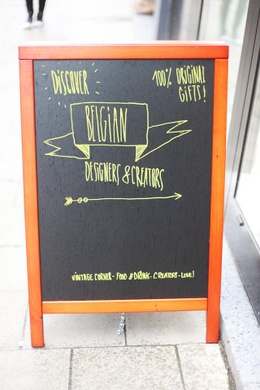 DISCOVER
100% ORIGINAL
GIFTS!
BELGIAN
DESIGNERS & CREATORS
VINTAGE CORNER - FOOD & DRINK - CREATORS - LOCAL!